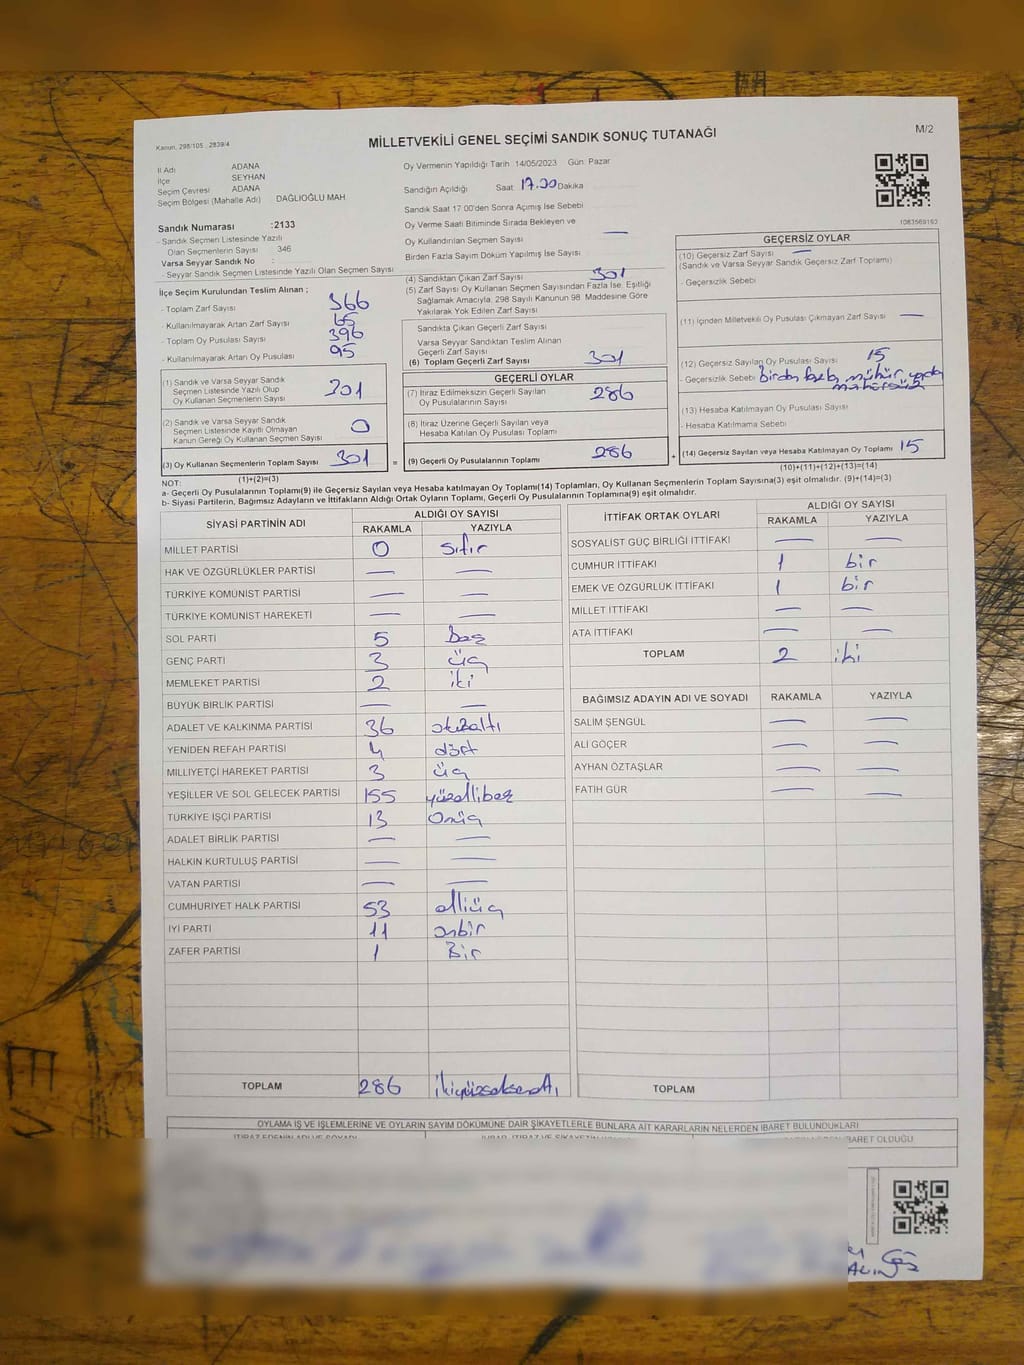 Kanun, 298/105 , 2839/4
MİLLETVEKİLİ GENEL SEÇİMİ SANDIK SONUÇ TUTANAĞI
M/2
İl Adı ADANA
İlçe SEYHAN
Seçim Çevresi ADANA
Seçim Bölgesi (Mahalle Adı) DAĞLIOĞLU MAH.
Sandık Numarası :2133
- Sandık Seçmen Listesinde Yazılı
Olan Seçmenlerin Sayısı : 346
Varsa Seyyar Sandık No :
- Seyyar Sandık Seçmen Listesinde Yazılı Olan Seçmen Sayısı
Oy Vermenin Yapıldığı Tarih :14/05/2023 Gün: Pazar
Sandığın Açıldığı Saat 17.00 Dakika
Sandık Saat 17:00'den Sonra Açımış İse Sebebi
Oy Verme Saati Bitiminde Sırada Bekleyen ve
Oy Kullandırılan Seçmen Sayısı —
Birden Fazla Sayım Döküm Yapılmış İse Sayısı
1083569163
İlçe Seçim Kurulundan Teslim Alınan ;
- Toplam Zarf Sayısı 366
- Kullanılmayarak Artan Zarf Sayısı 65
- Toplam Oy Pusulası Sayısı 396
- Kullanılmayarak Artan Oy Pusulası 95
(1) Sandık ve Varsa Seyyar Sandık
Seçmen Listesinde Yazılı Olup
Oy Kullanan Seçmenlerin Sayısı 301
(2) Sandık ve Varsa Seyyar Sandık
Seçmen Listesinde Kayıtlı Olmayan
Kanun Gereği Oy Kullanan Seçmen Sayısı 0
(3) Oy Kullanan Seçmenlerin Toplam Sayısı 301
(1)+(2)=(3)
(4) Sandıktan Çıkan Zarf Sayısı 301
(5) Zarf Sayısı Oy Kullanan Seçmen Sayısından Fazla İse, Eşitliği
Sağlamak Amacıyla, 298 Sayılı Kanunun 98. Maddesine Göre
Yakılarak Yok Edilen Zarf Sayısı
Sandıkta Çıkan Geçerli Zarf Sayısı
Varsa Seyyar Sandıktan Teslim Alınan
Geçerli Zarf Sayısı
(6) Toplam Geçerli Zarf Sayısı 301
GEÇERLİ OYLAR
(7) İtiraz Edilmeksizin Geçerli Sayılan
Oy Pusulalarının Sayısı 286
(8) İtiraz Üzerine Geçerli Sayılan veya
Hesaba Katılan Oy Pusulası Toplamı
= (9) Geçerli Oy Pusulalarının Toplamı 286
GEÇERSİZ OYLAR
(10) Geçersiz Zarf Sayısı —
(Sandık ve Varsa Seyyar Sandık Geçersiz Zarf Toplamı)
- Geçersizlik Sebebi
(11) İçinden Milletvekili Oy Pusulası Çıkmayan Zarf Sayısı —
(12) Geçersiz Sayılan Oy Pusulası Sayısı 15
- Geçersizlik Sebebi Birden fazla mühür yada
mühürsüz
(13) Hesaba Katılmayan Oy Pusulası Sayısı
- Hesaba Katılmama Sebebi
+ (14) Geçersiz Sayılan veya Hesaba Katılmayan Oy Toplamı 15
(10)+(11)+(12)+(13)=(14)
NOT:
a- Geçerli Oy Pusulalarının Toplamı(9) ile Geçersiz Sayılan veya Hesaba Katılmayan Oy Toplamı(14) Toplamları, Oy Kullanan Seçmenlerin Toplam Sayısına(3) eşit olmalıdır. (9)+(14)=(3)
b- Siyasi Partilerin, Bağımsız Adayların ve İttifakların Aldığı Ortak Oyların Toplamı, Geçerli Oy Pusulalarının Toplamına(9) eşit olmalıdır.
SİYASİ PARTİNİN ADI
ALDIĞI OY SAYISI
RAKAMLA YAZIYLA
MİLLET PARTİSİ 0 sıfır
HAK VE ÖZGÜRLÜKLER PARTİSİ — —
TÜRKİYE KOMÜNİST PARTİSİ — —
TÜRKİYE KOMÜNİST HAREKETİ — —
SOL PARTİ 5 beş
GENÇ PARTİ 3 üç
MEMLEKET PARTİSİ 2 iki
BÜYÜK BİRLİK PARTİSİ — —
ADALET VE KALKINMA PARTİSİ 36 otuzaltı
YENİDEN REFAH PARTİSİ 4 dört
MİLLİYETÇİ HAREKET PARTİSİ 3 üç
YEŞİLLER VE SOL GELECEK PARTİSİ 155 yüzellibeş
TÜRKİYE İŞÇİ PARTİSİ 13 onüç
ADALET BİRLİK PARTİSİ — —
HALKIN KURTULUŞ PARTİSİ — —
VATAN PARTİSİ — —
CUMHURİYET HALK PARTİSİ 53 elliüç
İYİ PARTİ 11 onbir
ZAFER PARTİSİ 1 Bir
TOPLAM 286 ikiyüzseksenaltı
İTTİFAK ORTAK OYLARI
ALDIĞI OY SAYISI
RAKAMLA YAZIYLA
SOSYALİST GÜÇ BİRLİĞİ İTTİFAKI — —
CUMHUR İTTİFAKI 1 bir
EMEK VE ÖZGÜRLÜK İTTİFAKI 1 bir
MİLLET İTTİFAKI — —
ATA İTTİFAKI — —
TOPLAM 2 iki
BAĞIMSIZ ADAYIN ADI VE SOYADI RAKAMLA YAZIYLA
SALİM ŞENGÜL — —
ALİ GÖÇER — —
AYHAN ÖZTAŞLAR — —
FATİH GÜR — —
TOPLAM
OYLAMA İŞ VE İŞLEMLERİNE VE OYLARIN SAYIM DÖKÜMÜNE DAİR ŞİKAYETLERLE BUNLARA AİT KARARLARIN NELERDEN İBARET BULUNDUKLARI
İTİRAZ EDENİN ADI VE SOYADI
İBARET OLDUĞU